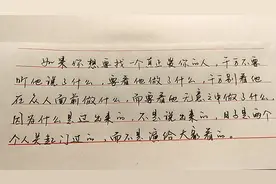 如果你想要找一个真正爱你的人，千万不要
听他说了什么，要看他做了什么，千万别看他
在众人面前做什么，而要看他无意之中做什么，
因为什么是过出来的，不是说出来的，日子是两个
个人关起门过的，而不是演给大家看的。